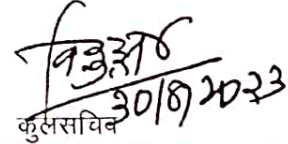 30/8/2023
कुलसचिव